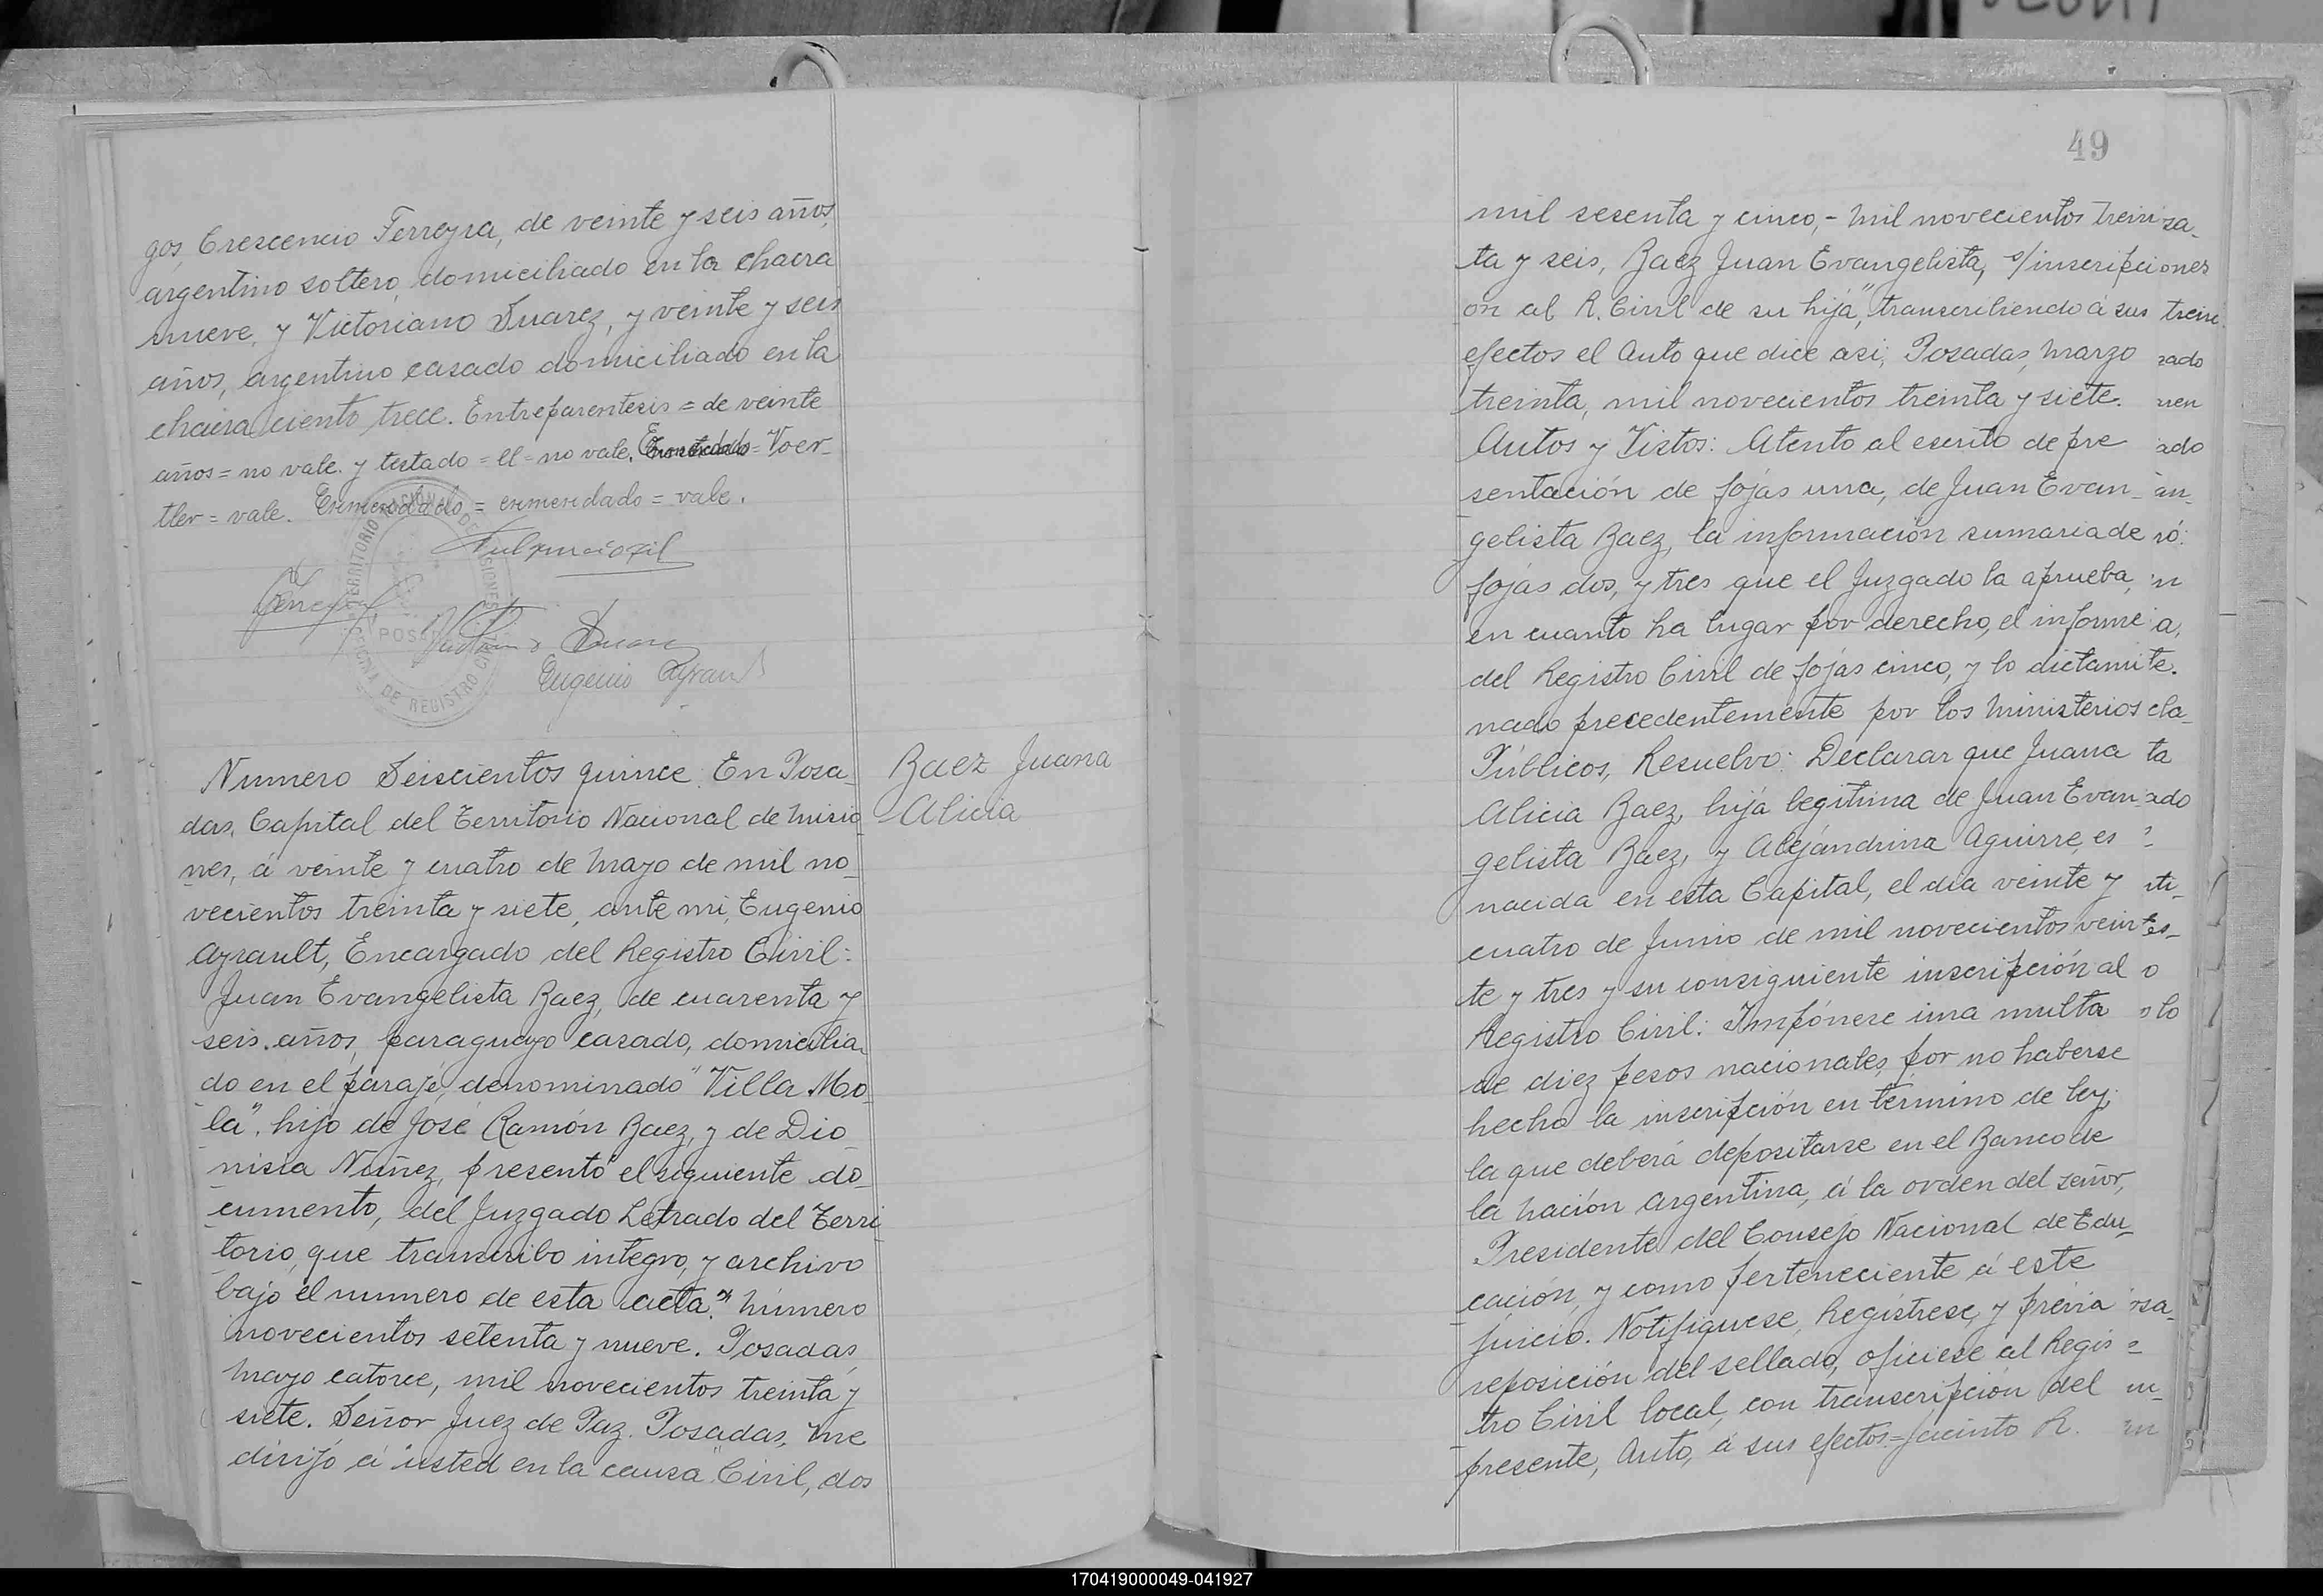 gos, Crescencio Ferreyra, de veinte y seis años,
argentino soltero, domiciliado en la chacra
nueve, y Victoriano Suarez, y veinte y seis
años, argentino casado domiciliado en la
chacra ciento trece. Entreparentesis = de veinte
años = no vale. y testado = el = no vale. = Voer-
tler = vale. Enmendado = enmendado = vale.
TERRITORIO NACIONAL DE MISIONES
OFICINA DE REGISTRO CIVIL
Eugenio Ayrault
Numero Seiscientos quince: En Posa-
das, Capital del Territorio Nacional de Misio-
nes, á veinte y cuatro de Mayo de mil no-
vecientos treinta y siete, ante mi, Eugenio
Ayrault, Encargado del Registro Civil:
Juan Evangelista Baez, de cuarenta y
seis años, paraguayo casado, domicilia-
do en el paraje, denominado "Villa Mo-
la", hijo de José Ramón Baez, y de Dio-
nisia Nuñez, presentó el siguiente do-
cumento, del Juzgado Letrado del Terri-
torio, que transcribo integro, y archivo
bajo el numero de esta acta." Número
novecientos setenta y nueve. Posadas,
Mayo catorce, mil novecientos treinta y
siete. Señor Juez de Paz. Posadas, Me
dirijo á usted en la causa "Civil, dos
Baez Juana
Alicia
49
mil sesenta y cinco, - Mil novecientos trein-
ta y seis, Baez Juan Evangelista, s/inscripci-
on al R. Civil de su hija", transcribiendo á sus
efectos el Auto que dice asi; Posadas, Marzo
treinta, mil novecientos treinta y siete.
Autos y Vistos: Atento al escrito de pre
sentación de fojas una, de Juan Evan-
gelista Baez, la información sumaria de
fojas dos, y tres que el Juzgado la aprueba,
en cuanto ha lugar por derecho, el informe
del Registro Civil de fojas cinco, y lo dictami-
nado precedentemente por los Ministerios
Públicos, Resuelvo: Declarar que Juana
Alicia Baez, hija legitima de Juan Evan-
gelista Baez, y Alejandrina Aguirre, es
nacida en esta Capital, el dia veinte y
cuatro de Junio de mil novecientos vein-
te y tres y su consiguiente inscripción al
Registro Civil: Impónese una multa
de diez pesos nacionales, por no haberse
hecho la inscripción en término de ley;
la que deberá depositarse en el Banco de
la Nación Argentina, á la orden del señor,
Presidente del Consejo Nacional de Edu-
cación, y como perteneciente á este
juicio. Notifiquese, Registrese, y previa
reposición del sellado, oficiese al Regis-
tro Civil local, con transcripción del
presente, Auto, á sus efectos = Jacinto R.
170419000049-041927